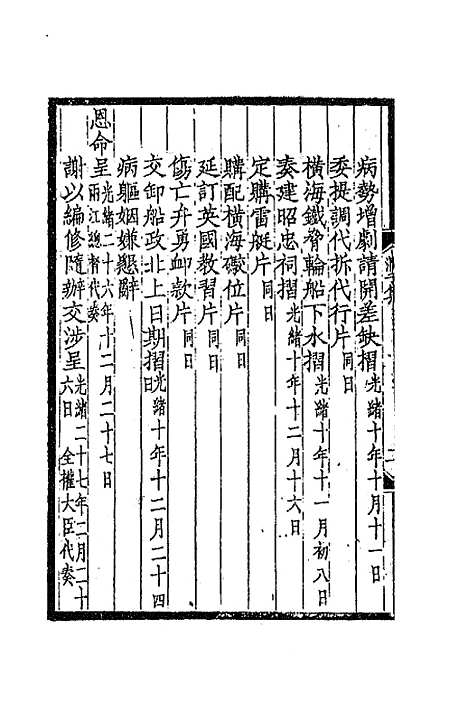 病勢增劇請開差缺摺光緒十年十月十一日
委提調代拆代行片同日
橫海鐵脅輪船下水摺光緒十年十一月初八日
奏建昭忠祠摺光緒十年十二月十六日
定購雷艇片同日
購配橫海礮位片同日
延訂英國教習片同日
傷亡弁勇卹款片同日
交卸船政北上日期摺光緒十年十二月二十四日
病軀姻嫌懇辭
恩命呈光緒二十六年十二月二十七日兩江總督代奏
謝以編修隨辦交涉呈光緒二十七年二月二十六日全權大臣代奏